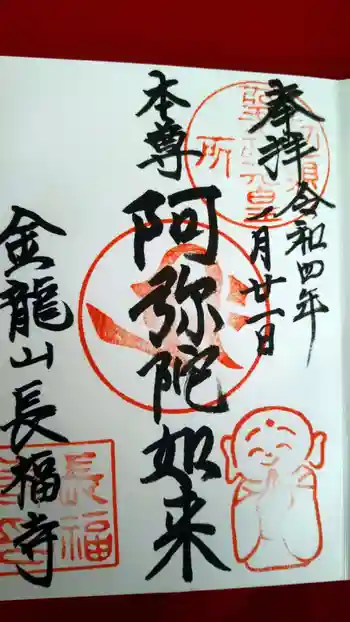 奉拝
令和四年
一月廿一日
本尊
阿弥陀如来
金龍山長福寺
長福